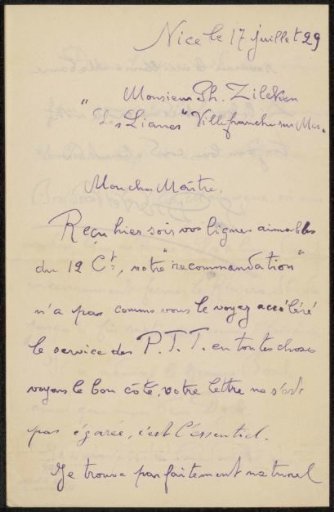 Nice le 17 juillet 29
Monsieur Ph. Zilcken
"Les Lianes" Villefranche sur Mer.
Mon cher Maître.
Reçu hier soir vos lignes aimables
du 12 Ct, notre "recommandation"
n'a pas comme vous le voyez accéléré
le service des P.T.T. en toutes choses
voyons le bon côté, votre lettre ne s'est
pas égarée, c'est l'essentiel.
Je trouve parfaitement naturel